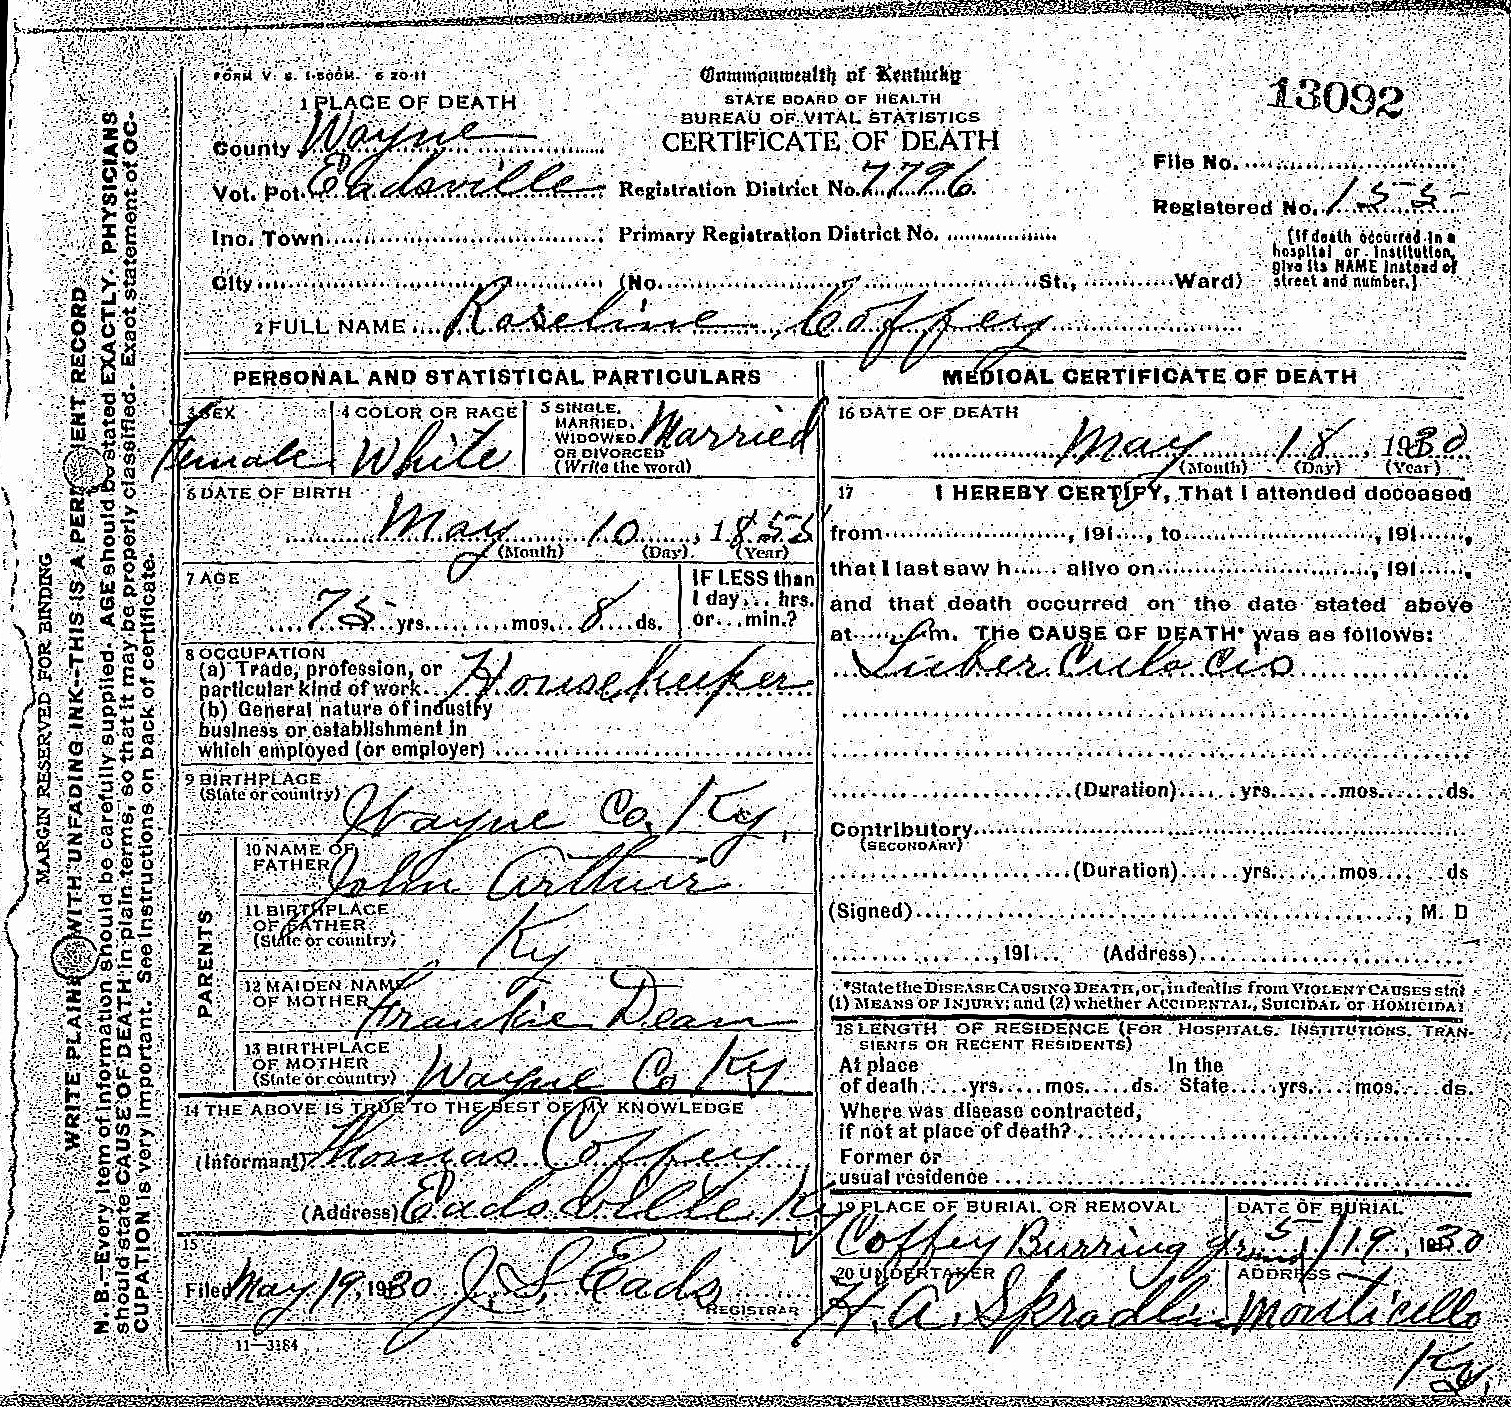 FORM V. S. 1-500M. 6 20-11
Commonwealth of Kentucky
STATE BOARD OF HEALTH
BUREAU OF VITAL STATISTICS
CERTIFICATE OF DEATH
13092
1 PLACE OF DEATH
County Wayne
Vot. Pct. Eadsville
Registration District No. 7796
File No.
Registered No. 155
Inc. Town
Primary Registration District No.
City (No. St., Ward)
(If death occurred in a
hospital or institution,
give its NAME instead of
street and number.)
2 FULL NAME Roseline Coffey
PERSONAL AND STATISTICAL PARTICULARS
3 SEX
Female
4 COLOR OR RACE
White
5 SINGLE,
MARRIED,
WIDOWED
OR DIVORCED
(Write the word)
Married
6 DATE OF BIRTH
May 10, 1855
(Month) (Day) (Year)
7 AGE
75 yrs. mos. 8 ds.
IF LESS than
1 day... hrs.
or...min.?
8 OCCUPATION
(a) Trade, profession, or
particular kind of work Housekeeper
(b) General nature of industry
business or establishment in
which employed (or employer)
9 BIRTHPLACE
(State or country)
Wayne Co. Ky.
PARENTS
10 NAME OF
FATHER
John Arthur
11 BIRTHPLACE
OF FATHER
(State or country)
Ky
12 MAIDEN NAME
OF MOTHER
Frankie Dean
13 BIRTHPLACE
OF MOTHER
(State or country)
Wayne Co Ky
14 THE ABOVE IS TRUE TO THE BEST OF MY KNOWLEDGE
(Informant) Thomas Coffey
(Address) Eadsville Ky
15
Filed May 19, 1930 J. S. Eads
REGISTRAR
11-3184
MEDICAL CERTIFICATE OF DEATH
16 DATE OF DEATH
May 18, 1930
(Month) (Day) (Year)
17 I HEREBY CERTIFY, That I attended deceased
from , 191 , to , 191 ,
that I last saw h alive on , 191 ,
and that death occurred on the date stated above
at m. The CAUSE OF DEATH* was as follows:
Tuber Culo Cis
(Duration) yrs. mos. ds.
Contributory
(SECONDARY)
(Duration) yrs. mos. ds
(Signed) , M. D
, 191 (Address)
*State the DISEASE CAUSING DEATH, or, in deaths from VIOLENT CAUSES stat
(1) MEANS OF INJURY; and (2) whether ACCIDENTAL, SUICIDAL or HOMICIDAL
18 LENGTH OF RESIDENCE (FOR HOSPITALS, INSTITUTIONS, TRAN-
SIENTS OR RECENT RESIDENTS)
At place In the
of death yrs. mos. ds. State yrs. mos. ds.
Where was disease contracted,
if not at place of death?
Former or
usual residence
19 PLACE OF BURIAL OR REMOVAL
Coffey Burring
DATE OF BURIAL
5/19, 1930
20 UNDERTAKER
H. A. Spradlin
ADDRESS
Monticello
Ky.
MARGIN RESERVED FOR BINDING
WRITE PLAINLY WITH UNFADING INK--THIS IS A PERMANENT RECORD
N. B.--Every item of information should be carefully supplied. AGE should be stated EXACTLY. PHYSICIANS
should state CAUSE OF DEATH in plain terms, so that it may be properly classified. Exact statement of OC-
CUPATION is very important. See instructions on back of certificate.